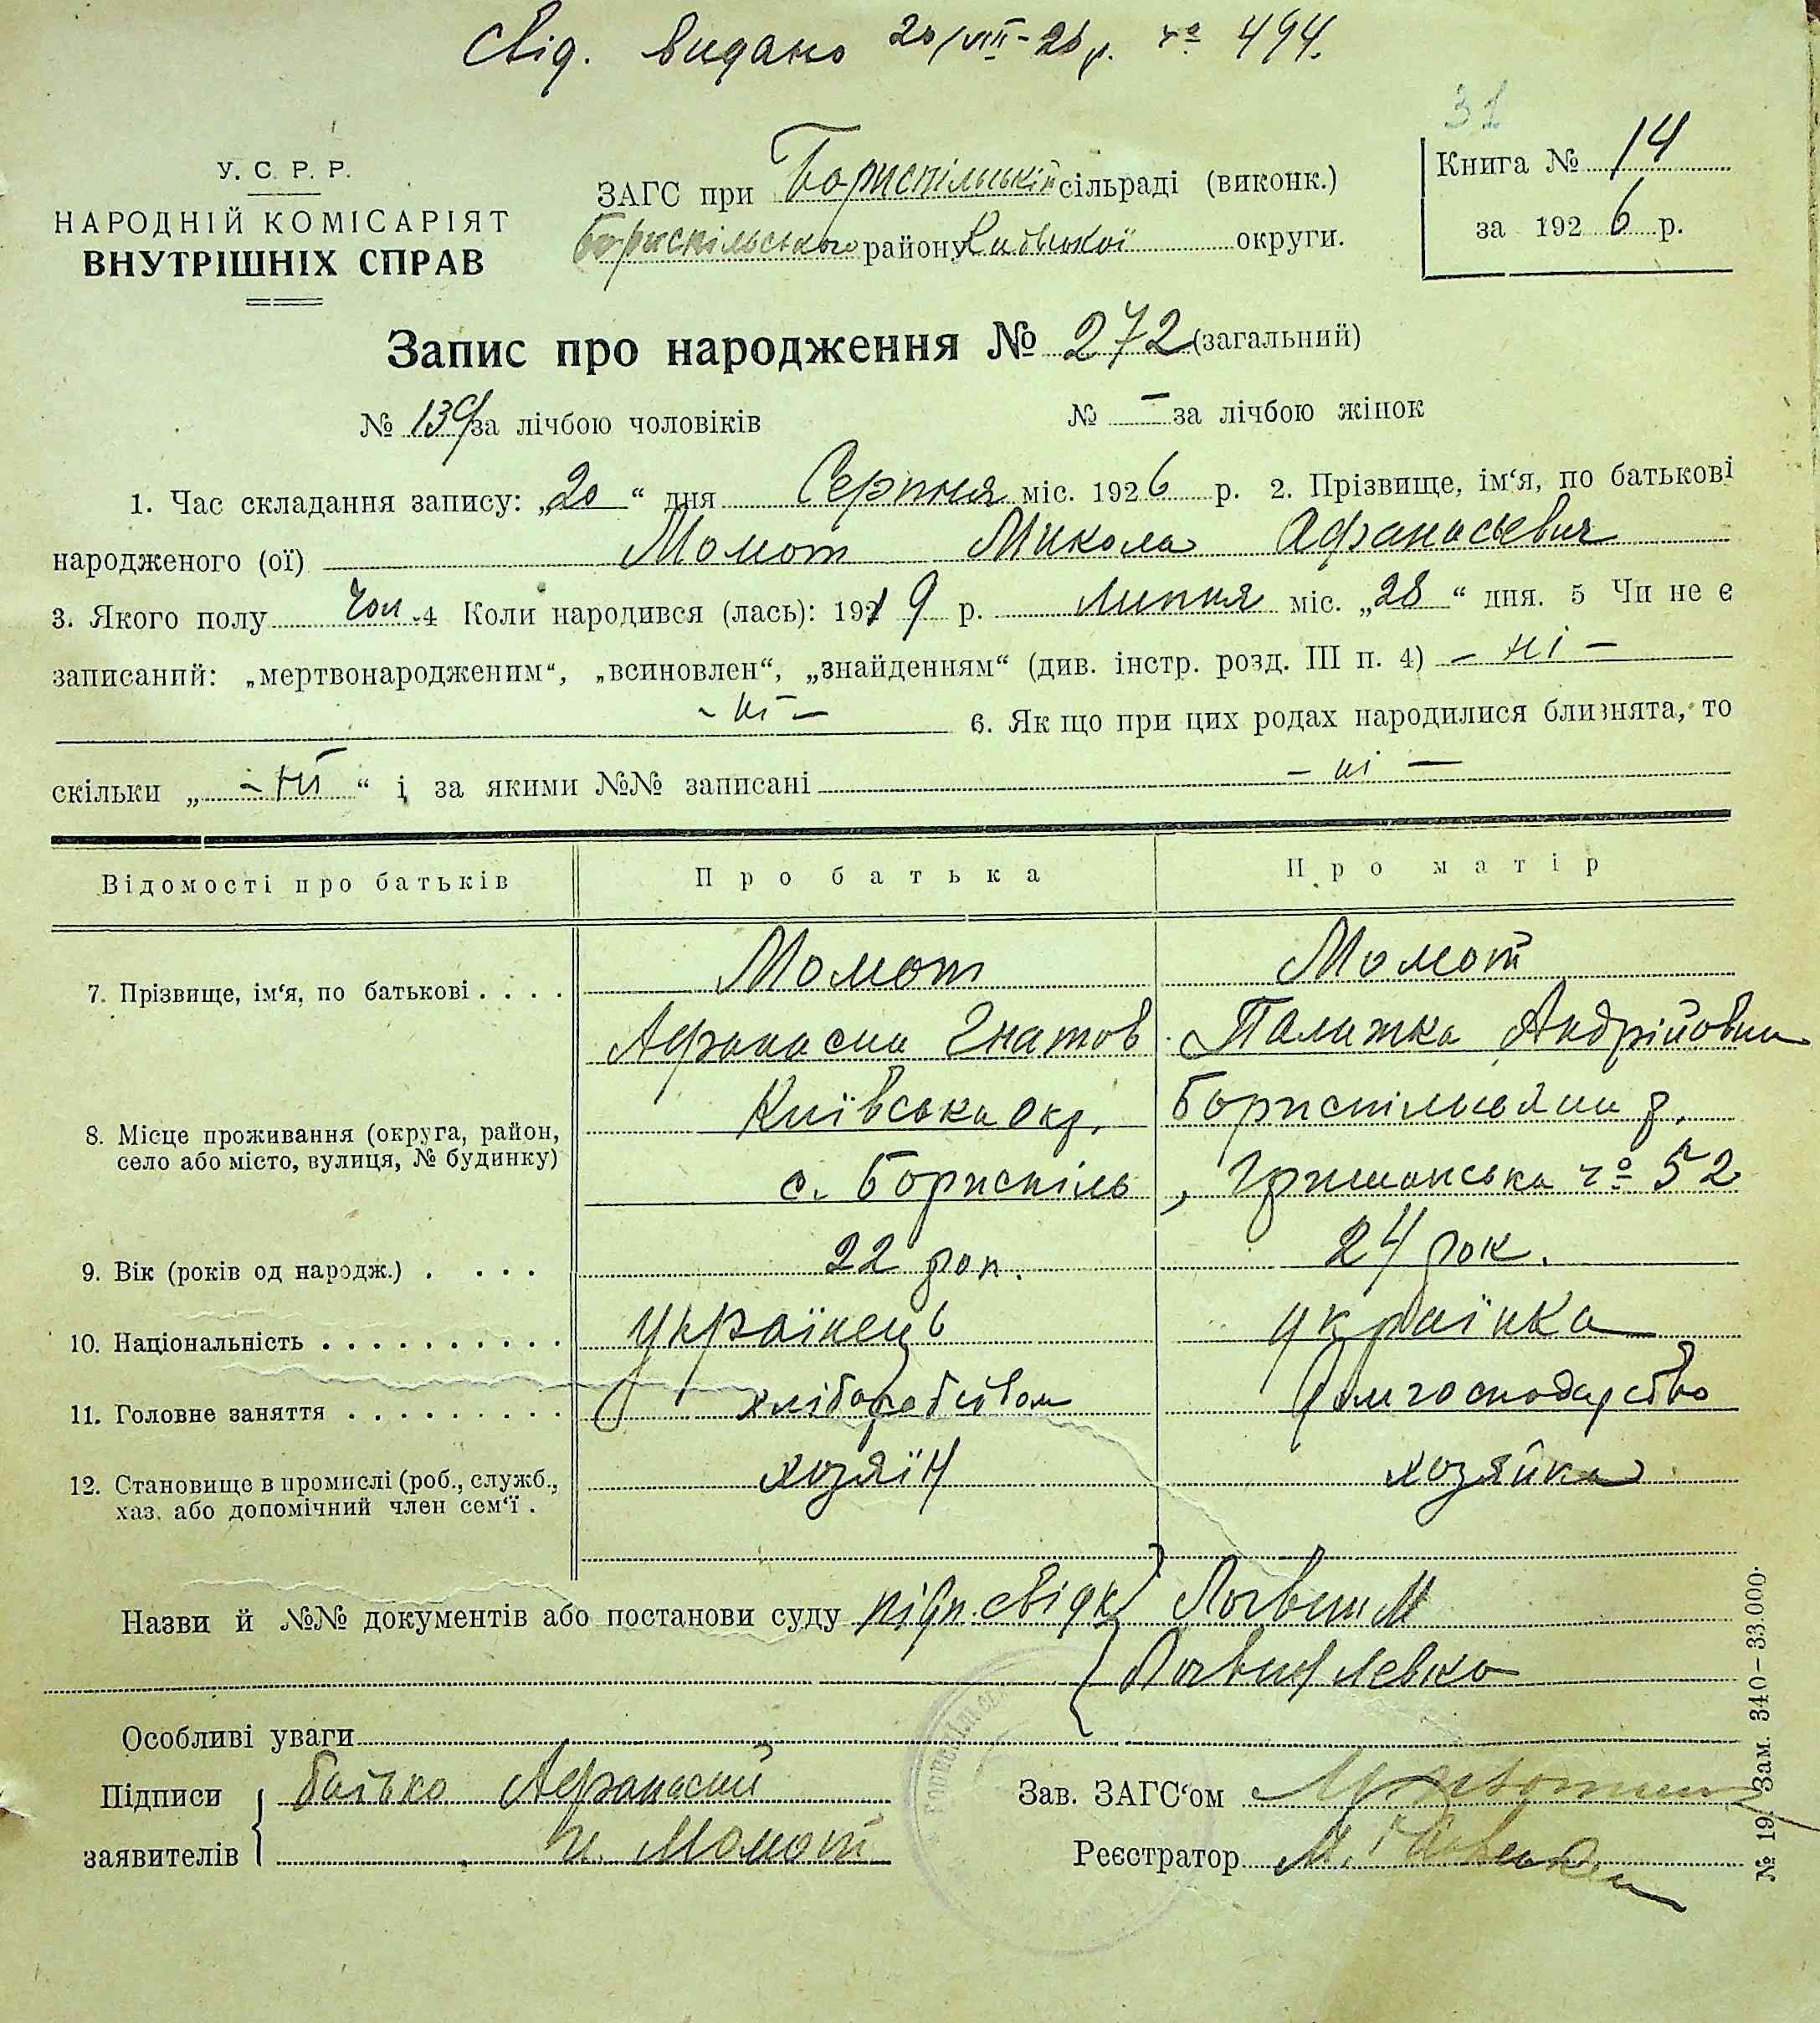 Свід. видано 20/VIII-26 р. № 494.
31
У. С. Р. Р.
НАРОДНІЙ КОМІСАРІЯТ
ВНУТРІШНІХ СПРАВ
ЗАГС при Бориспільській сільраді (виконк.)
Бориспільського району Київської округи.
Книга № 14
за 1926 р.
Запис про народження № 272 (загальний)
№ 139 за лічбою чоловіків № — за лічбою жінок
1. Час складання запису: „20“ дня Серпня міс. 1926 р. 2. Прізвище, ім‘я, по батькові
народженого (ої) Момот Микола Афанасьевич
3. Якого полу чол. 4 Коли народився (лась): 1919 р. Липня міс. „28“ дня. 5 Чи не є
записаний: „мертвонародженим“, „всиновлен“, „знайденням“ (див. інстр. розд. III п. 4) – ні –
– ні – 6. Як що при цих родах народилися близнята, то
скільки „– ні“ і за якими №№ записані – ні –
Відомості про батьків Про батька Про матір
7. Прізвище, ім‘я, по батькові . . . . Момот Момот
Афанасии Гнатов Палажка Андрійовна
8. Місце проживання (округа, район, село або місто, вулиця, № будинку) Київська окр.
с. Бориспіль, № 52
9. Вік (років од народж.) . . . . 22 рок. 24 рок.
10. Національність . . . . . . . . . . українець українка
11. Головне заняття . . . . . . . . . хліборобством господарство
12. Становище в промислі (роб., служб., хаз. або допомічний член сем‘ї . хозяїн хозяйка
Назви й №№ документів або постанови суду підп. свідк. Логвин М
Логвин Левко
Особливі уваги
Підписи заявителів батько Афанасий
И. Момот
Зав. ЗАГС‘ом
Реєстратор М.
№ 19. Зам. 340–33.000.